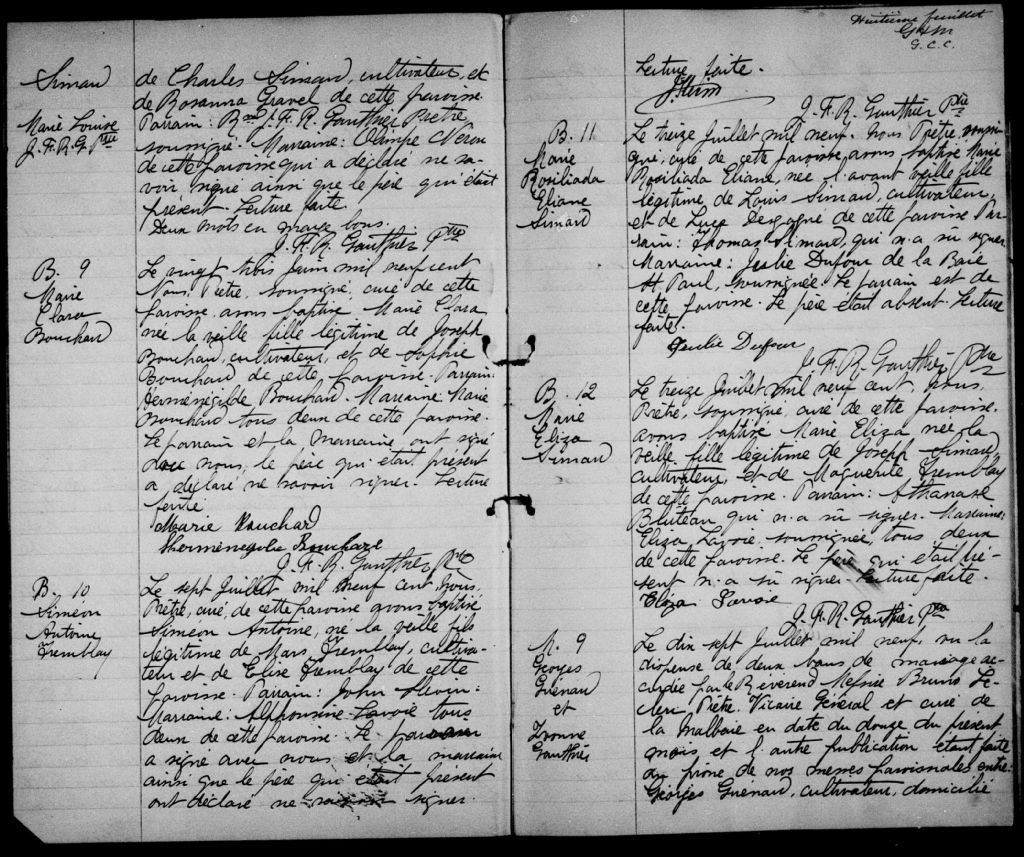 Simard
de Charles Simard, cultivateur, et
de Rosanna Gravel de cette paroisse.
Marie Louise
Parrain: J. F. R. Gauthier Prêtre
J. F. R. G. Ptre
soussigné. Marraine: Olympe Néron
de cette paroisse qui a déclaré ne sa-
voir signer ainsi que le père qui était
présent. Lecture faite.
Deux mots en marge bons.
J. F. R. Gauthier Ptre
B. 9
Marie
Clara
Bouchard
Le vingt trois juin mil neuf cent
Nous, Prêtre, soussigné, curé de cette
paroisse, avons baptisé Marie Clara
née la veille fille légitime de Joseph
Bouchard, cultivateur, et de Sophie
Bouchard de cette paroisse. Parrain:
Herménégilde Bouchard. Marraine Marie
Bouchard tous deux de cette paroisse.
Le parrain et la marraine ont signé
avec nous, le père qui était présent
a déclaré ne savoir signer. Lecture
faite
Marie Bouchard
Hermenegilde Bouchard
J. F. R. Gauthier Ptre
B. 10
Siméon
Antoine
Tremblay
Le sept Juillet mil neuf cent, Nous,
Prêtre, curé, de cette paroisse avons baptisé
Siméon Antoine, né la veille fils
légitime de Mars Tremblay, cultiva-
teur et de Elise Tremblay de cette
paroisse. Parrain: John
Marraine: Alphonsine Savoie tous
deux de cette paroisse. Le parrain
a signé avec nous et la marraine
ainsi que le père qui était présent
ont déclaré ne savoir signer.
Huitième feuillet
G. C. C.
Lecture faite.
J. F. R. Gauthier Ptre
B. 11
Marie
Rosiliada
Eliane
Simard
Le treize Juillet mil neuf. Nous Prêtre soussi-
gné, curé de cette paroisse, avons baptisé Marie
Rosiliada Eliane, née l'avant veille fille
légitime de Louis Simard, cultivateur,
et de Luce Desgagné de cette paroisse Par-
rain: Thomas Simard, qui n'a sû signer
Marraine: Julie Dufour de la Baie
St Paul, soussignée. Le parrain est de
cette paroisse. Le père était absent. Lecture
faite.
Julie Dufour
J. F. R. Gauthier, Ptre
B. 12
Marie
Eliza
Simard
Le treize Juillet mil neuf cent, nous,
Prêtre, soussigné, curé de cette paroisse,
avons baptisé Marie Eliza née la
veille, fille légitime de Joseph Simard
cultivateur, et de Marguerite Tremblay
de cette paroisse. Parrain: Athanase
Bluteau qui n'a sû signer. Marraine:
Eliza Savoie, soussignée, tous deux
de cette paroisse. Le père qui était pré-
sent n'a sû signer. Lecture faite.
Eliza Savoie
J. F. R. Gauthier Ptre
M. 9
Georges
Guénard
et
Ivonne
Gauthier
Le dix-sept Juillet mil neuf, vu la
dispense de deux bans de mariage ac-
cordée par le Révérend Messire Bruno Le-
clerc, Prêtre. Vicaire Général et curé de
la Malbaie en date du douze du présent
mois et l'autre publication étant faite
au prône de nos messes paroissiales, entre
Georges Guénard, cultivateur, domicilié